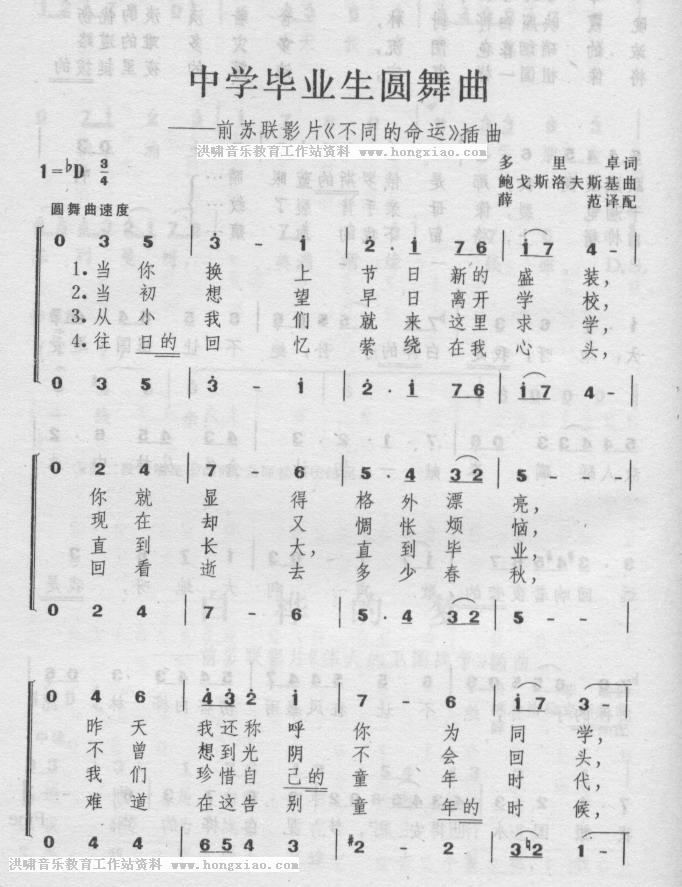 中学毕业生圆舞曲
——前苏联影片《不同的命运》插曲
洪啸音乐教育工作站资料 www.hongxiao.com
1=♭D 3/4
多里卓词
鲍戈斯洛夫斯基曲
薛范译配
圆舞曲速度
0 3 5 | 3̇ - i | 2̇ · i 76 | i7 4 - |
1.当你换上节日新的盛装，
2.当初想望早日离开学校，
3.从小我们就来这里求学，
4.往日的回忆萦绕在我心头，
0 3 5 | 3̇ - i | 2̇ · i 76 | i7 4 - |
0 2 4 | 7 - 6 | 5 · 4 32 | 5 - - |
你就显得格外漂亮，
现在却又惆怅烦恼，
直到长大，直到毕业，
回看逝去多少春秋，
0 2 4 | 7 - 6 | 5 · 4 32 | 5 - - |
0 4 6 | 4̇3̇2̇i | 7 - 6 | i7 3 - |
昨天我还称呼你为同学，
不曾想到光阴不会回头，
我们珍惜自己的童年时代，
难道在这告别童年的时候，
0 4 4 | 6543 | #2 - 2 | 3♮2 1 - |
洪啸音乐教育工作站资料 www.hongxiao.com